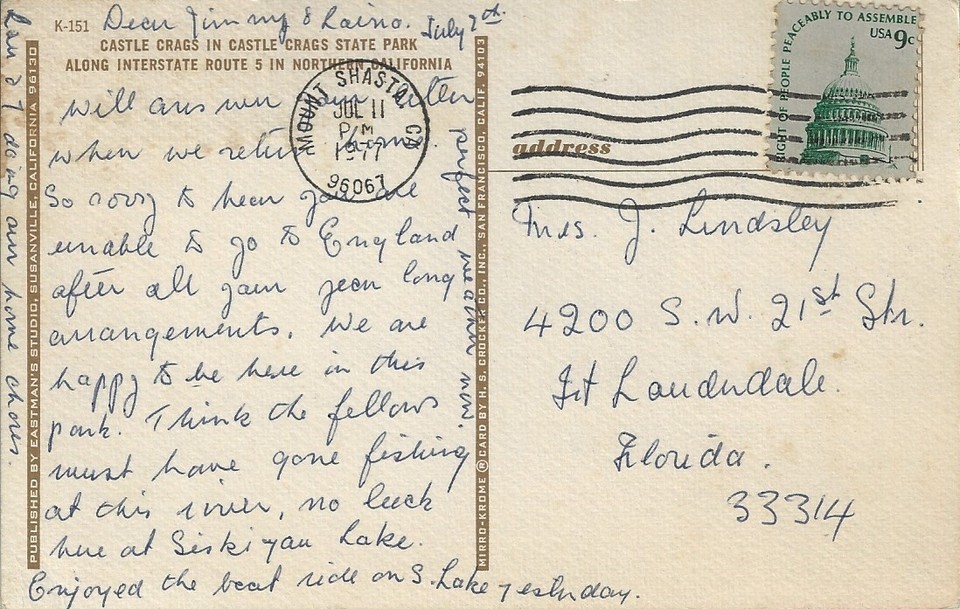 K-151
Dear Jimmy & Raino. July 7th.
CASTLE CRAGS IN CASTLE CRAGS STATE PARK
ALONG INTERSTATE ROUTE 5 IN NORTHERN CALIFORNIA
will answer your letter
when we return home.
So sorry to hear you are
unable to go to England
after all your year long
arrangements. We are
happy to be here in this
park. Think the fellows
must have gone fishing
at this river, no luck
here at Siskiyau Lake.
Enjoyed the boat ride on S. Lake yesterday.
perfect weather now.
& I doing our home chores.
PUBLISHED BY EASTMAN'S STUDIO, SUSANVILLE, CALIFORNIA 96130
MIRRO-KROME ® CARD BY H. S. CROCKER CO., INC., SAN FRANCISCO, CALIF. 94103
MOUNT SHASTA, CA
JUL 11
PM
1977
96067
RIGHT OF PEOPLE PEACEABLY TO ASSEMBLE
USA 9c
address
Mrs. J. Lindsley
4200 S.W. 21st Str.
Ft Lauderdale.
Florida.
33314